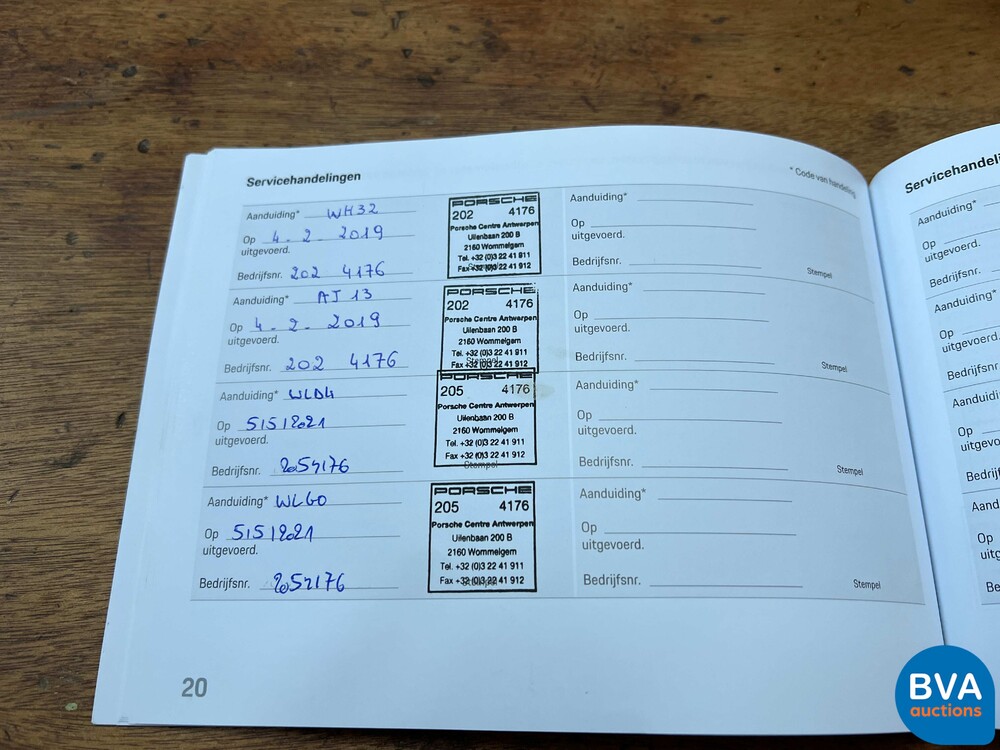 Servicehandelingen
* Code van handeling
Aanduiding* WH32
Op 4 - 2 - 2019
uitgevoerd.
Bedrijfsnr. 202 4176
PORSCHE
202 4176
Porsche Centre Antwerpen
Uilenbaan 200 B
2160 Wommelgem
Tel. +32 (0)3 22 41 911
Fax +32 (0)3 22 41 912
Stempel
Aanduiding*
Op
uitgevoerd.
Bedrijfsnr.
Stempel
Aanduiding* AJ 13
Op 4 - 2 - 2019
uitgevoerd.
Bedrijfsnr. 202 4176
PORSCHE
202 4176
Porsche Centre Antwerpen
Uilenbaan 200 B
2160 Wommelgem
Tel. +32 (0)3 22 41 911
Fax +32 (0)3 22 41 912
Stempel
Aanduiding*
Op
uitgevoerd.
Bedrijfsnr.
Stempel
Aanduiding* WLD4
Op 5/5/2021
uitgevoerd.
Bedrijfsnr. 2054176
PORSCHE
205 4176
Porsche Centre Antwerpen
Uilenbaan 200 B
2160 Wommelgem
Tel. +32 (0)3 22 41 911
Fax +32 (0)3 22 41 912
Stempel
Aanduiding*
Op
uitgevoerd.
Bedrijfsnr.
Stempel
Aanduiding* WLG0
Op 5/5/2021
uitgevoerd.
Bedrijfsnr. 2054176
PORSCHE
205 4176
Porsche Centre Antwerpen
Uilenbaan 200 B
2160 Wommelgem
Tel. +32 (0)3 22 41 911
Fax +32 (0)3 22 41 912
Stempel
Aanduiding*
Op
uitgevoerd.
Bedrijfsnr.
Stempel
20
Servicehandeli
Aanduiding*
Op
uitgevoerd.
Bedrijfsnr.
Aanduiding*
Op
uitgevoerd.
Bedrijfsnr
Aanduidi
Op
uitgevo
Bedrijfs
Aandu
Op
uitg
Be
BVA
auctions